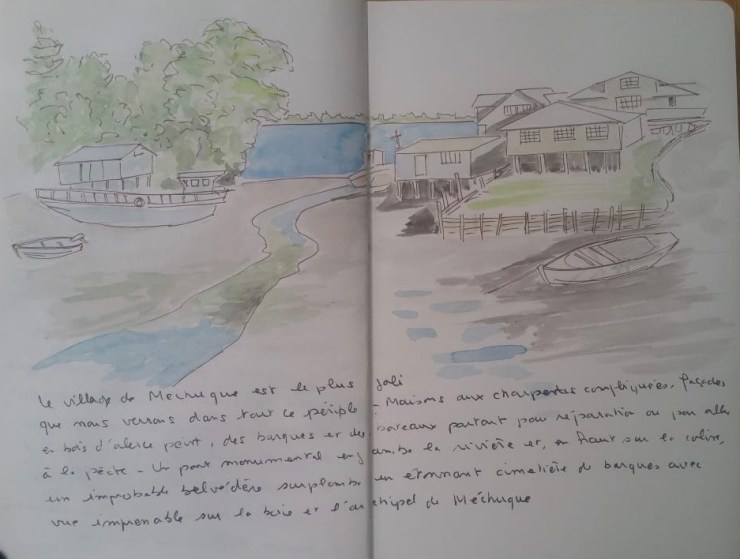 Le village de Mechuque est le plus joli
que nous verrons dans tout ce périple - Maisons aux charpentes compliquées, façades
en bois d'alerce peint, des barques et des bateaux partant pour réparation ou pour aller
à la pêche - Un pont monumental enjambe la rivière et, en haut sur la colline,
un improbable belvédère surplombe un étonnant cimetière de barques avec
vue imprenable sur la baie et l'archipel de Méchuque